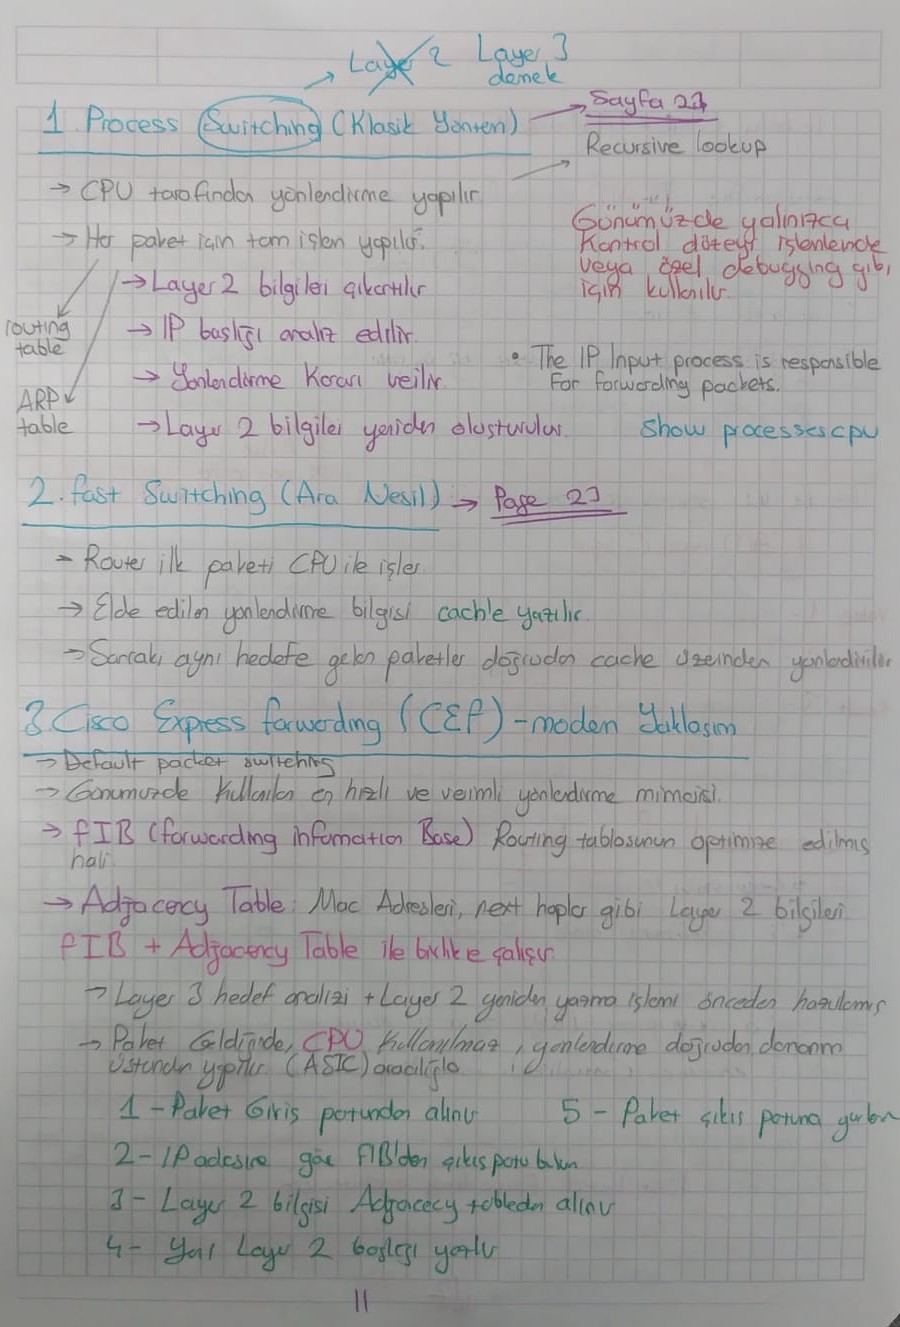 Layer 2 Layer 3
demek
1. Process Switching (Klasik Yöntem)
Sayfa 27
Recursive lookup
→ CPU tarafından yönlendirme yapılır
→ Her paket için tam işlem yapılır.
routing
table
ARP
table
→ Layer 2 bilgileri çıkartılır
→ IP başlığı analiz edilir.
→ Yönlendirme Kararı verilir
→ Layer 2 bilgileri yeniden oluşturulur.
Günümüzde yalnızca
Kontrol düzeyi işlemlerinde
veya özel debugging gibi
için kullanılır.
• The IP Input process is responsible
For forwarding packets.
Show processes cpu
2. fast Switching (Ara Nesil) → Page 27
→ Router ilk paketi CPU ile işler
→ Elde edilen yönlendirme bilgisi cach'e yazılır.
→ Sonraki aynı hedefe gelen paketler doğrudan cache üzerinden yönlendirilir
3. Cisco Express forwarding (CEF) - modern Yaklaşım
→ Default packet switching
→ Günümüzde Kullanılan en hızlı ve verimli yönlendirme mimarisi.
→ FIB (forwarding information Base) Routing tablosunun optimize edilmiş
hali
→ Adjacency Table: Mac Adresleri, next hoplar gibi Layer 2 bilgileri
FIB + Adjacency Table ile birlikte çalışır.
→ Layer 3 hedef analizi + Layer 2 yeniden yazma işlemi önceden hazırlanmış
→ Paket Geldiğinde, CPU Kullanılmaz, yönlendirme doğrudan donanım
üstünden yapılır (ASIC) aracılığıyla
1 - Paket Giriş portundan alınır
2 - IP adresine göre FIB'den çıkış portu bulunur
3 - Layer 2 bilgisi Adjacecy tabledan alınır
4 - Yeni Layer 2 başlığı yazılır
5 - Paket çıkış portuna
11